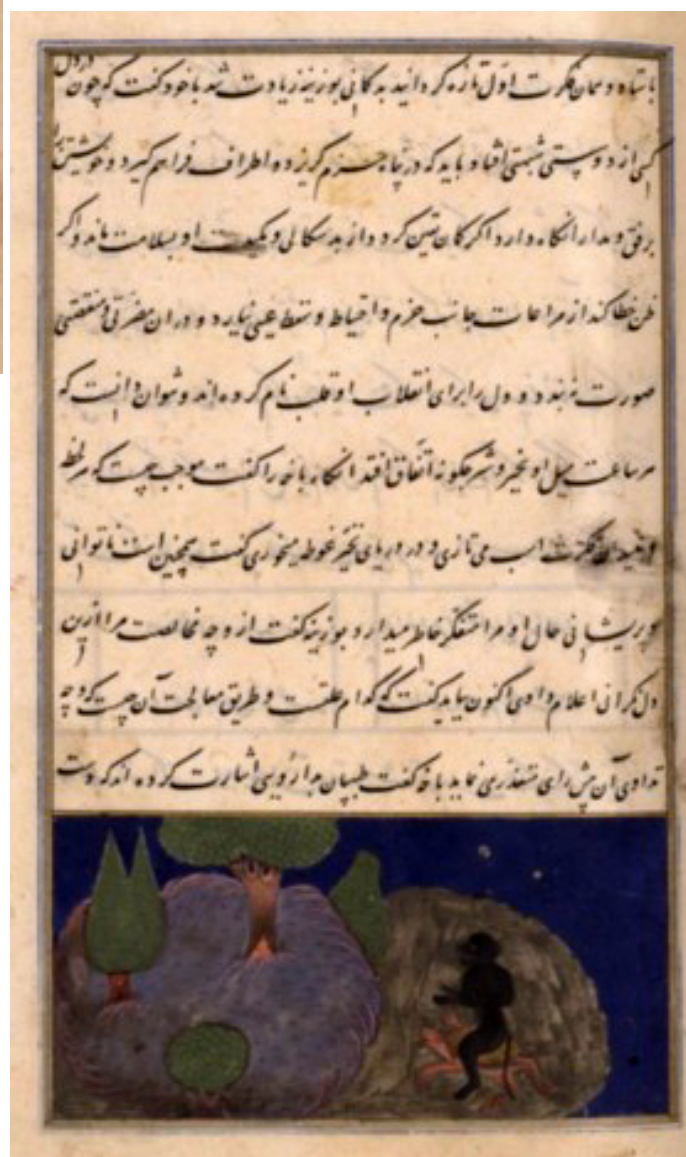 باستاد و همان فکرت اول تازه گردانید بدگمانی بوزینه زیادت شد با خود گفت که چون در دل
کسی از دوستی شبهتی افتاد باید که در پناه حزم گریزد و اطراف فراهم گیرد و خویشتن را
برفق و مدارا نگاه دارد اگر گمان یقین گردد از بدسگالی و او بسلامت ماند و اگر
ظن خطا کند از مراعات جانب حزم و احتیاط و تیقظ عیبی نیارد و دران مضرتی و منقصتی
صورت نبندد و دل را برای انقلاب او قلب نام کرده اند و نتوان دانست که
هر ساعت میل او بخیر و شر چگونه اتفاق افتد انگاه باخه را گفت موجب چیست که هر لحظه
در میدان فکرت اسب می تازی و در دریای تحیر غوطه میخوری گفت همچنین است ناتوانی
و پریشانی حال او مرا متفکر خاطر میدارد بوزینه گفت از وجه مخالصت مرا ازین
دل نگرانی اعلام دادی اکنون بباید گفت که کدام علتست و طریق معالجت آن چیست که وجه
تداوی آن پیش رای متعذر نماید باخه گفت طبیبان بدارویی اشارت کرده اند که دست